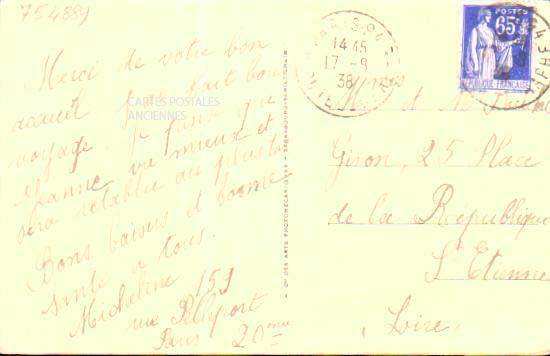 754889
Merci de votre bon
accueil fait bon
voyage. Je pense que
Jeanne va mieux et
sera rétablie au plus tôt
Bons baisers et bonne
santé à tous.
Micheline 153
rue Pelleport
Paris 20me
CARTES POSTALES
ANCIENNES
14 45
17 - 9
38
POSTES
65c
RÉPUBLIQUE FRANÇAISE
et M
Giron, 25 Place
de la République
St Etienne
Loire